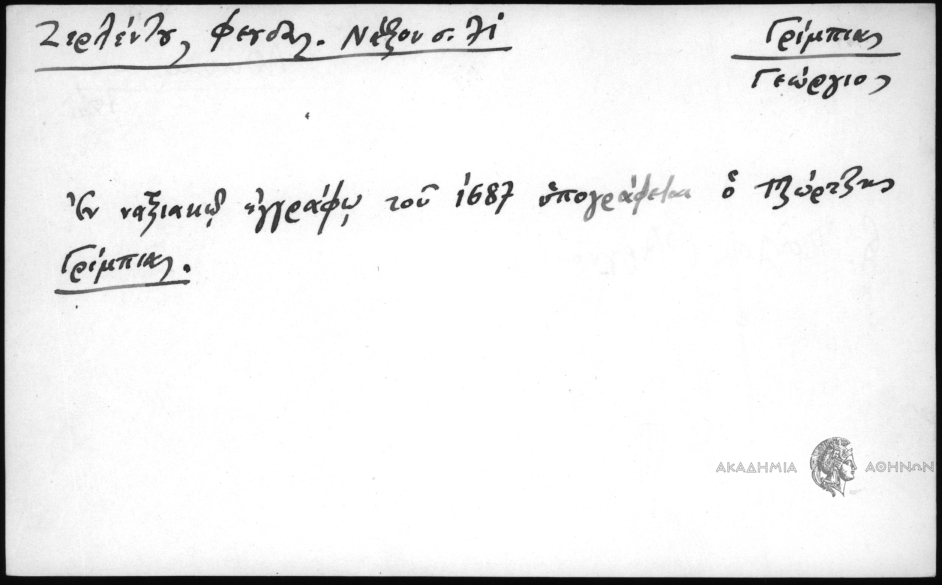 Ζερλέντου, Φεουδ. Νάξου σ. λί
Γρίμπιας
Γεώργιος
Ἐν ναξιακῷ ἐγγράφῳ τοῦ 1687 ὑπογράφεται ὁ Τζώρτζης
Γρίμπιας.
ΑΚΑΔΗΜΙΑ ΑΘΗΝΩΝ